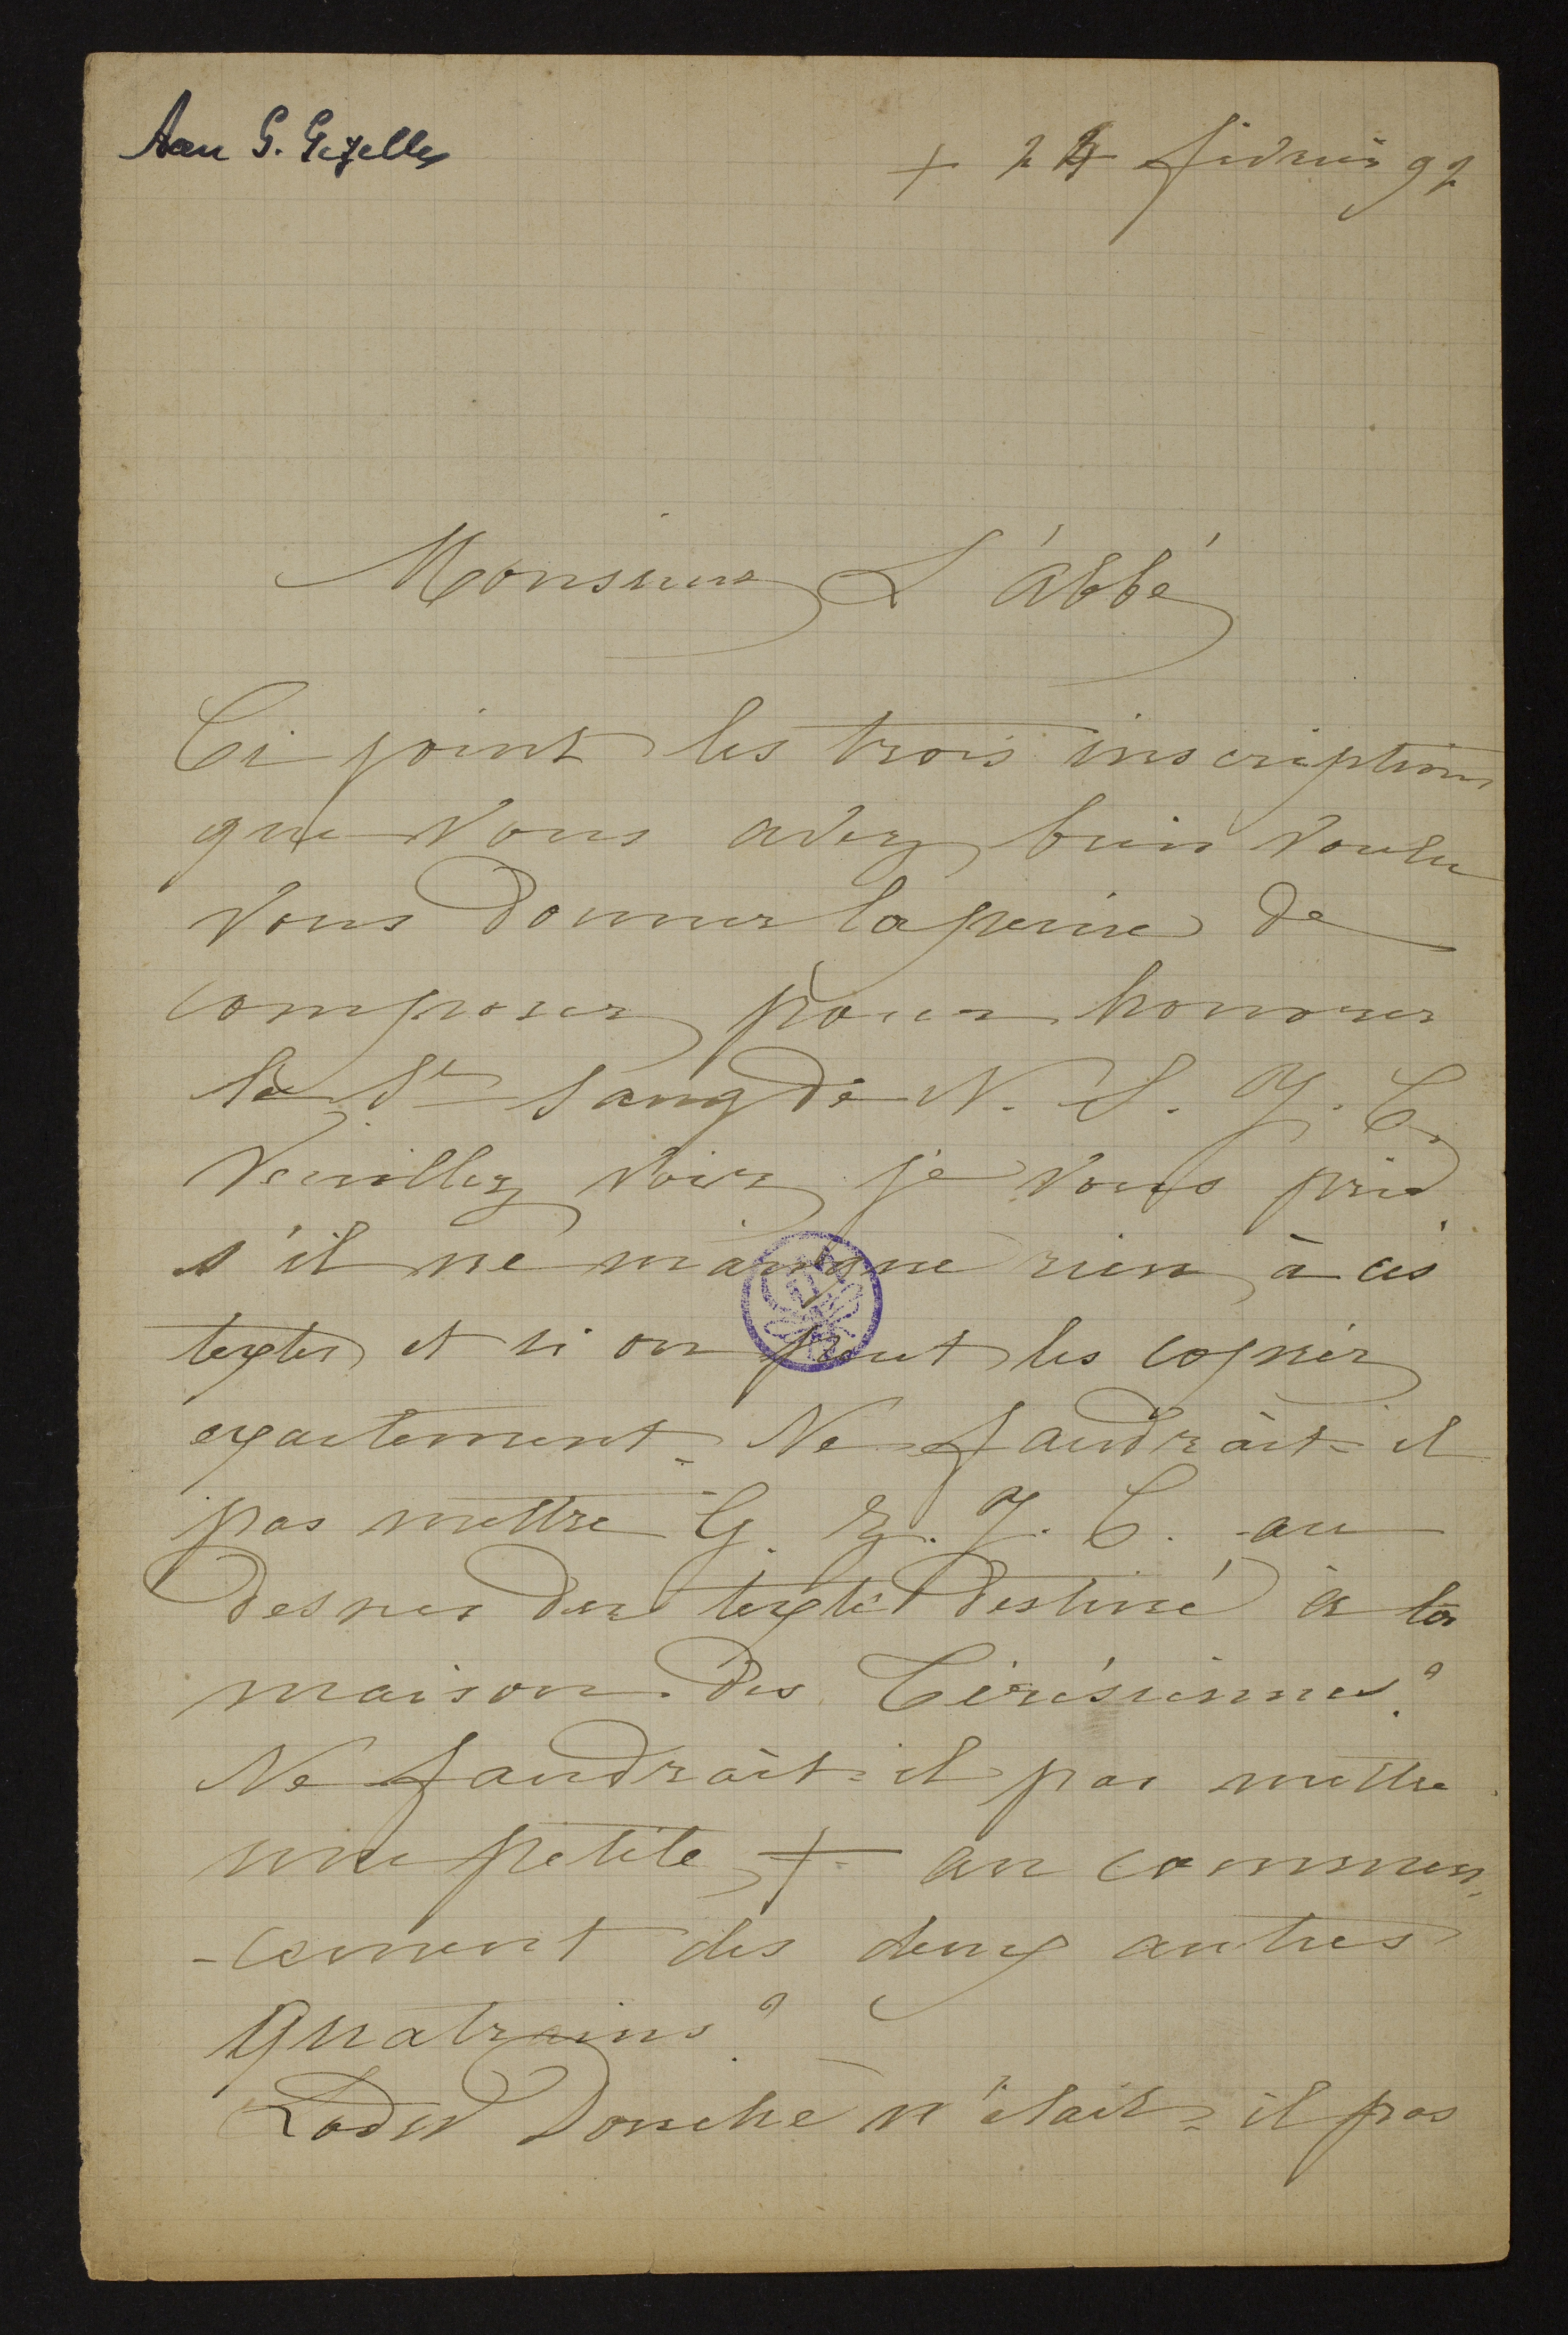 Aan G. Gezelle
+ 24 février 92
Monsieur L'ábbé
Ci joint les trois inscriptions
que vous avez bien voulu
vous donner la peine de
composer pour honorer
le St Sang de N. S. J. C.
Veuillez voir je vous prie
s'il ne manque rien à ces
textes et si on peut les copier
exactement. Ne faudrait-il
pas mettre G. Z. J. C. au
dessus du texte destiné à la
maison des Térésiennes?
Ne faudrait-il pas mettre
une petite + au commen-
-cement des deux autres
quatrains?
Lodew Donche n'était-il pas